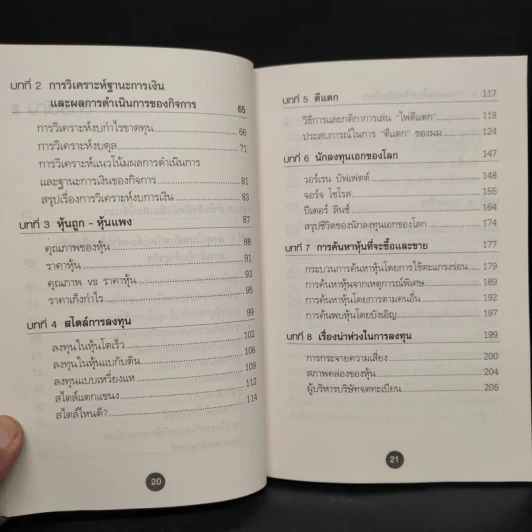 บทที่ 2 การวิเคราะห์ฐานะการเงิน
และผลการดำเนินการของกิจการ 65
การวิเคราะห์งบกำไรขาดทุน 66
การวิเคราะห์งบดุล 71
การวิเคราะห์แนวโน้มผลการดำเนินการ
และฐานะการเงินของกิจการ 81
สรุปเรื่องการวิเคราะห์งบการเงิน 83
บทที่ 3 หุ้นถูก - หุ้นแพง 87
คุณภาพของหุ้น 88
ราคาหุ้น 91
คุณภาพ vs ราคาหุ้น 93
ราคาเก็งกำไร 95
บทที่ 4 สไตล์การลงทุน 99
ลงทุนในหุ้นโตเร็ว 102
ลงทุนในหุ้นแบกับดิน 106
ลงทุนแบบเหวี่ยงแห 109
สไตล์แตกแขนง 112
สไตล์ไหนดี? 114
20
บทที่ 5 ดีแตก 117
วิธีการและกติกาการเล่น "ไพ่ดีแตก" 118
ประสบการณ์ในการ "ดีแตก" ของผม 124
บทที่ 6 นักลงทุนเอกของโลก 147
วอร์เรน บัฟเฟตต์ 148
จอร์จ โซโรส 155
ปีเตอร์ ลินช์ 164
สรุปชีวิตของนักลงทุนเอกของโลก 174
บทที่ 7 การค้นหาหุ้นที่จะซื้อและขาย 177
กระบวนการค้นหาหุ้นโดยการใช้ตะแกรงร่อน 179
การค้นหาหุ้นจากเหตุการณ์พิเศษ 189
การค้นหาหุ้นโดยการตามคนอื่น 192
การค้นพบหุ้นโดยบังเอิญ 197
บทที่ 8 เรื่องน่าห่วงในการลงทุน 199
การกระจายความเสี่ยง 200
สภาพคล่องของหุ้น 204
ผู้บริหารบริษัทจดทะเบียน 205
21